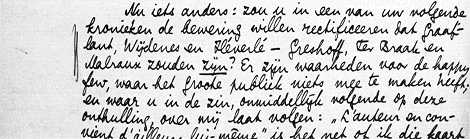 Nu iets anders: zou u in een van uw volgende
kronieken de bewering willen rectificeeren dat Graaf-
lant, Wijdenes en Héverlé – Greshoff, Ter Braak en
Malraux zouden zijn? Er zijn waarheden voor de happy
few, waar het groote publiek niets mee te maken heeft,
en waar u in de zin, onmiddellijk volgende op deze
onthulling, over mij laat volgen: "L'auteur en con-
vient d'ailleurs lui-même" is het net of ik die kaart